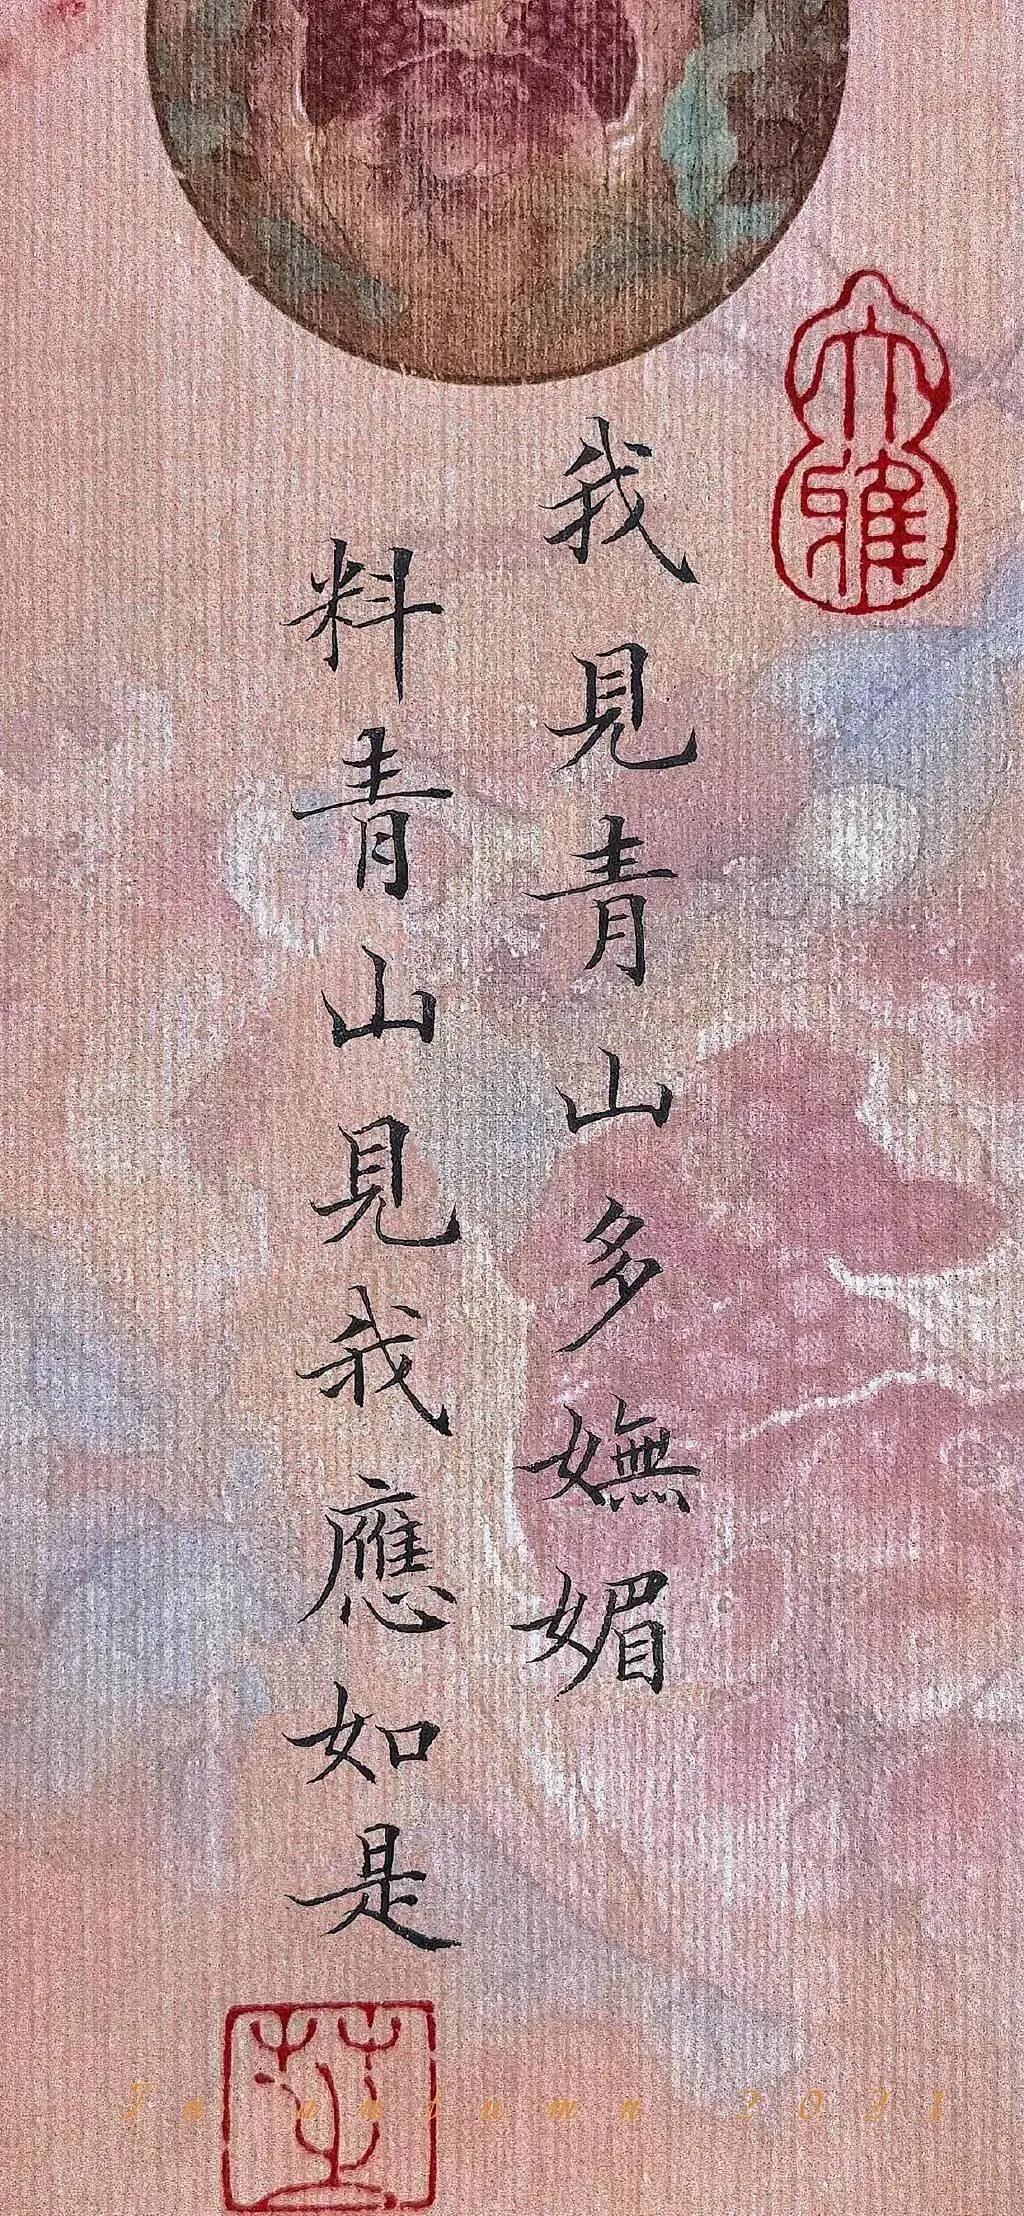 大雅
我見青山多嫵媚
料青山見我應如是
In autumn 2021